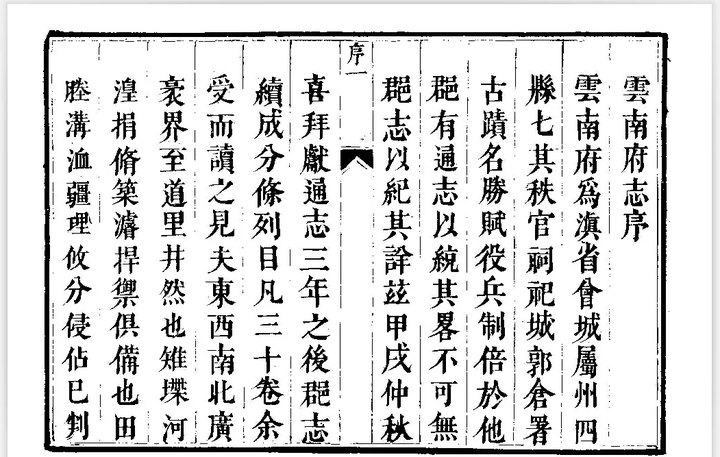 雲南府志序
雲南府爲滇省會城屬州四
縣七其秩官祠祀城郭倉署
古蹟名勝賦役兵制倍於他
郡有通志以統其畧不可無
郡志以紀其詳茲甲戌仲秋
序
一
喜拜獻通志三年之後郡志
續成分條列目凡三十卷余
受而讀之見夫東西南北廣
袤界至道里井然也雉堞河
湟捐脩築濬捍禦俱備也田
塍溝洫疆理攸分侵佔已判